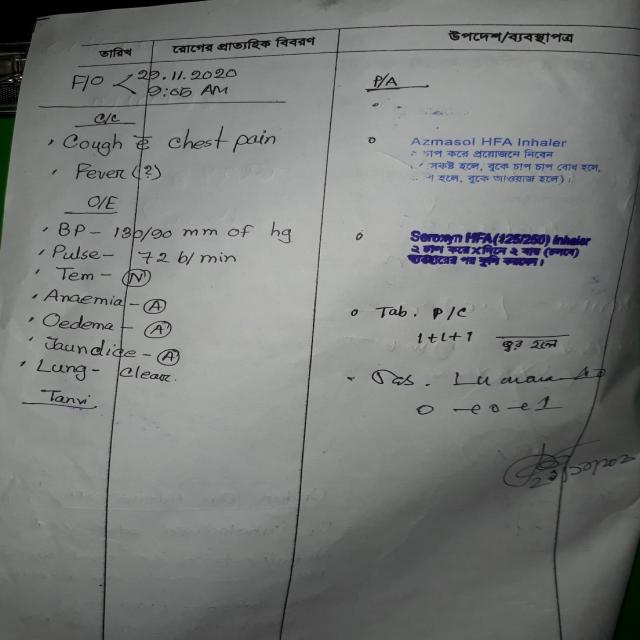 তারিখ
রোগের প্রাত্যহিক বিবরণ
উপদেশ/ব্যবস্থাপত্র
F/O < 22.11.2020
9:05 AM
C/C
Cough c̄ chest pain
Fever (?)
O/E
BP - 130/90 mm of hg
Pulse - 72 b/min
Tem - N
Anaemia - A
Oedema - A
Jaundice - A
Lung - clear.
Tanvi
P/A
Azmasol HFA Inhaler
চাপ করে প্রয়োজনে নিবেন
হলে, বুকে চাপ চাপ বোধ হলে,
হলে, বুকে আওয়াজ হলে)।
Seroxyn HFA (125/250) Inhaler
২ চাপ করে দিনে ২ বার (চলবে)
ব্যবহারের পর কুলি করবেন।
Tab. P/C
1+1+1 জ্বর হলে